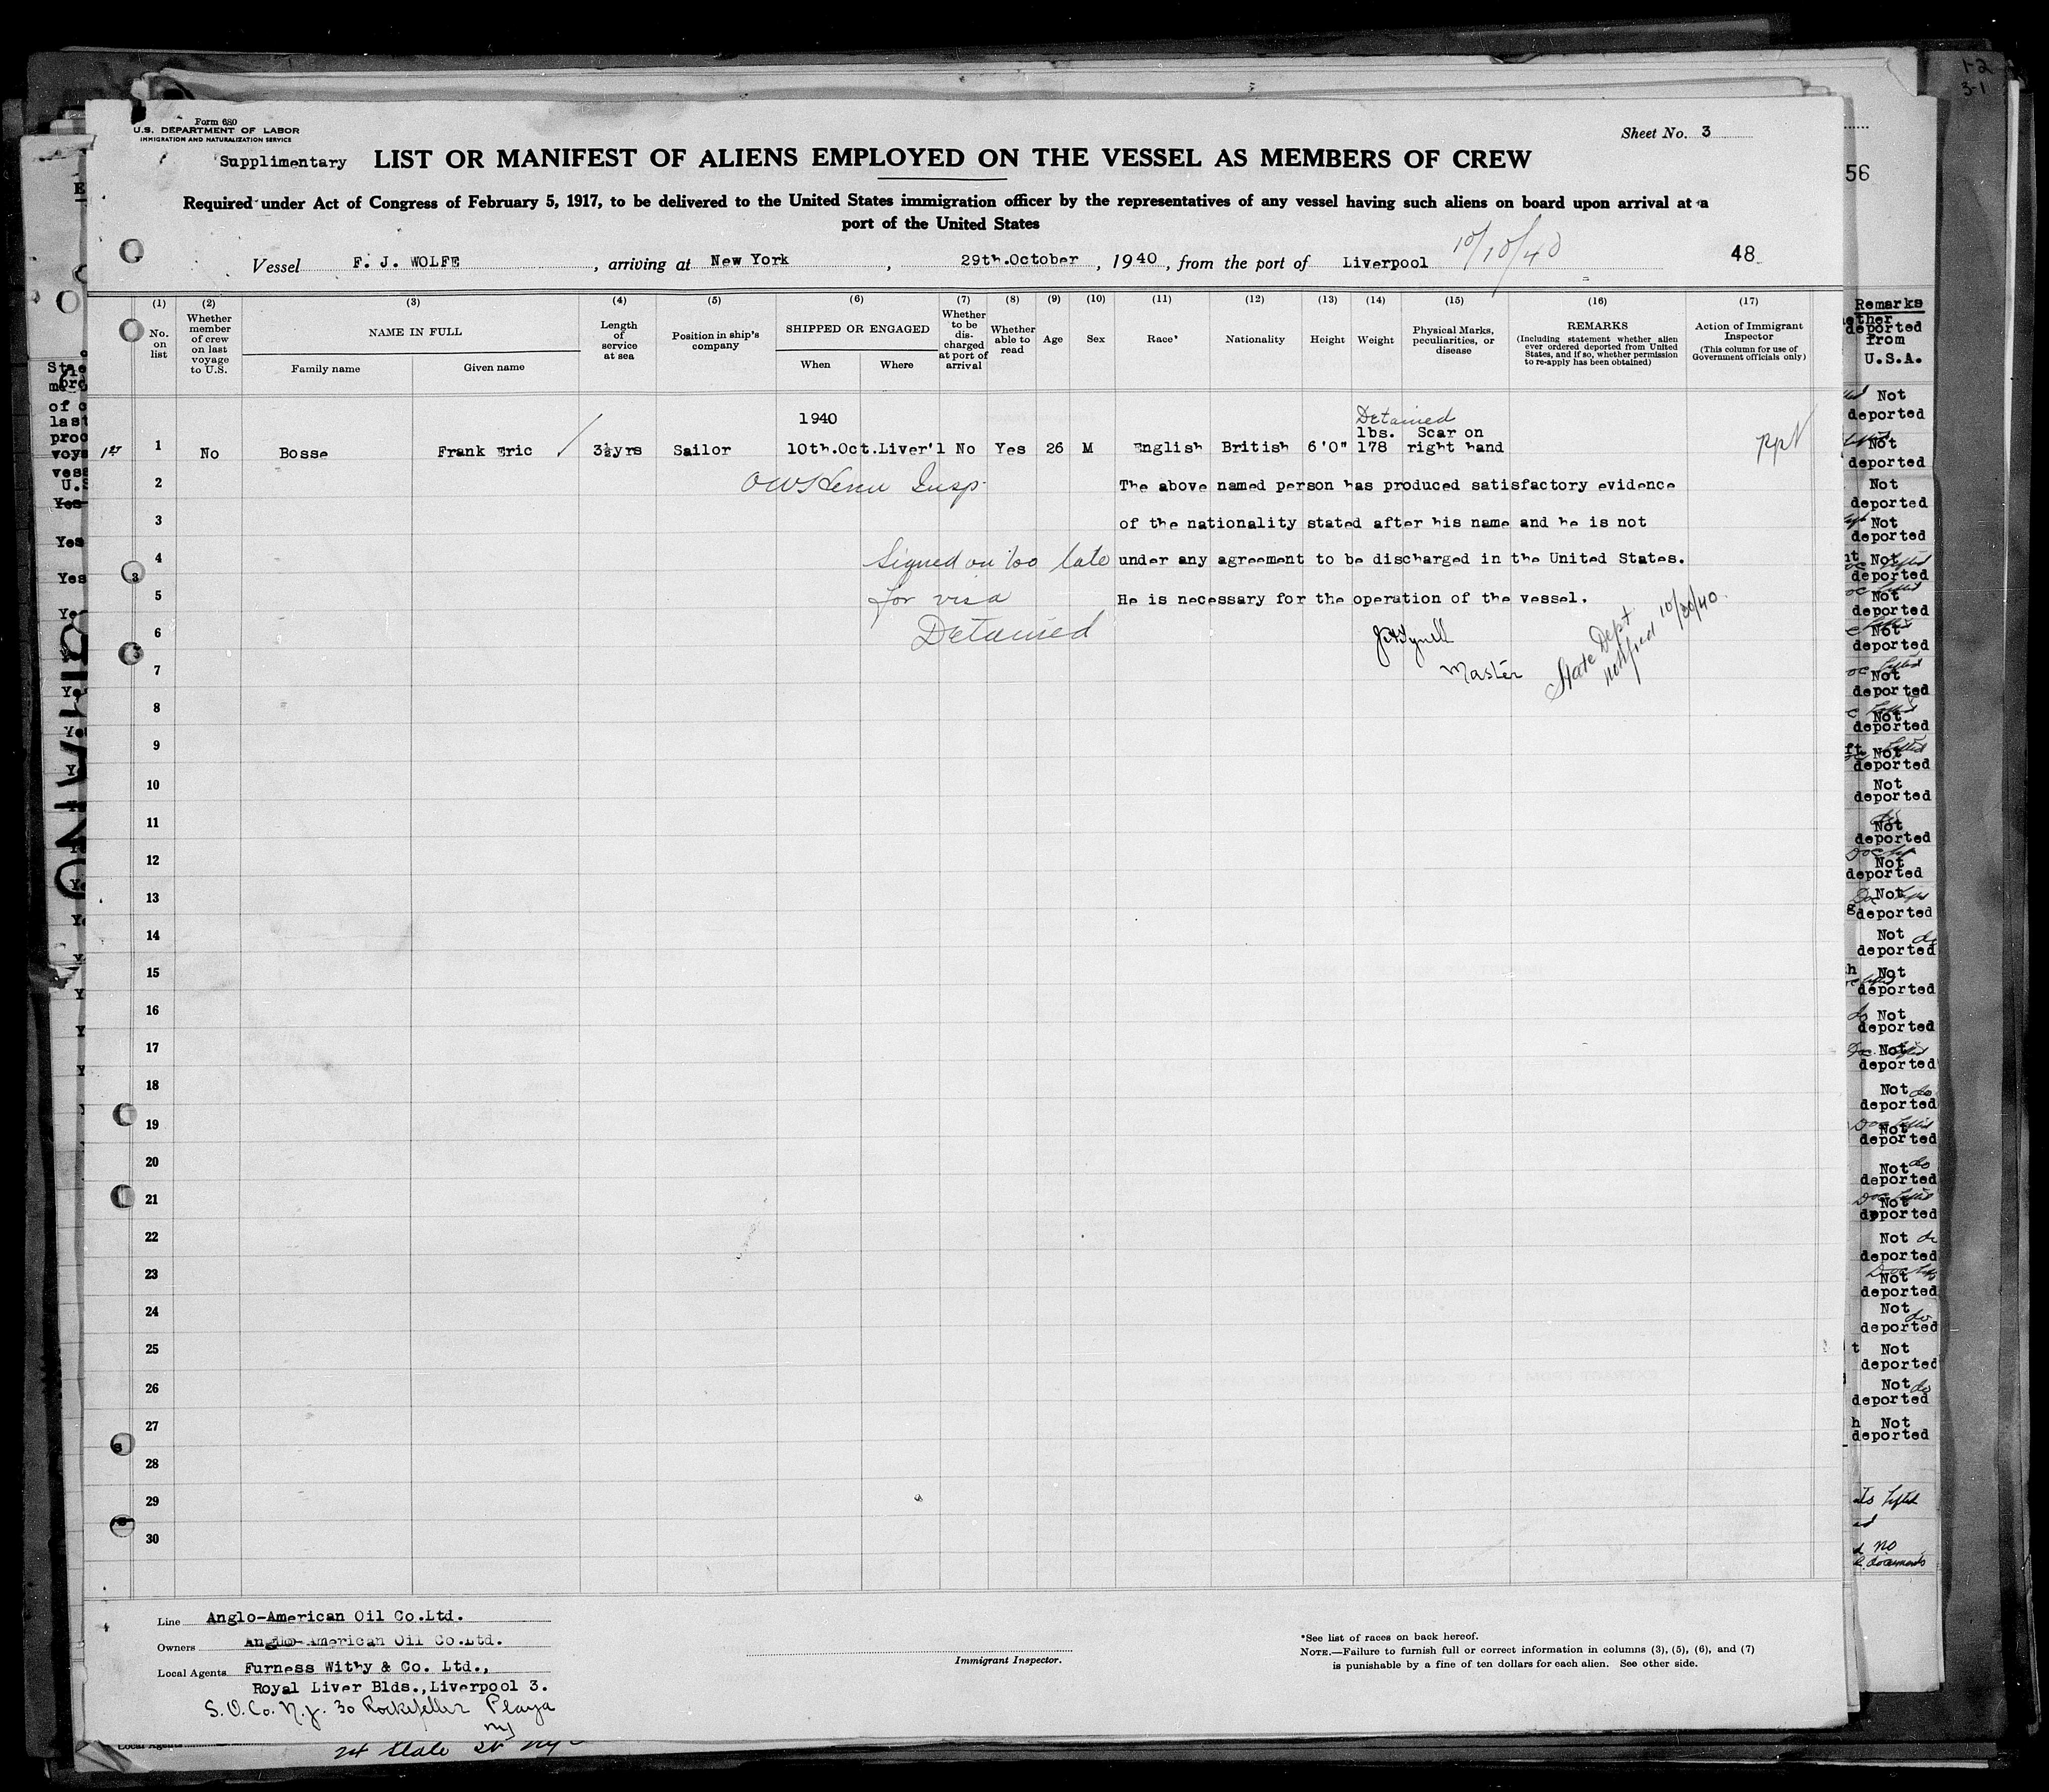 1-2
3-1
Form 680
U.S. DEPARTMENT OF LABOR
IMMIGRATION AND NATURALIZATION SERVICE
Sheet No. 3
Supplimentary LIST OR MANIFEST OF ALIENS EMPLOYED ON THE VESSEL AS MEMBERS OF CREW
56
Required under Act of Congress of February 5, 1917, to be delivered to the United States immigration officer by the representatives of any vessel having such aliens on board upon arrival at a
port of the United States
Vessel F. J. WOLFE, arriving at New York, 29th.October, 1940, from the port of Liverpool 10/10/40 48
(1) (2) (3) (4) (5) (6) (7) (8) (9) (10) (11) (12) (13) (14) (15) (16) (17)
No. on list
Whether member of crew on last voyage to U.S.
NAME IN FULL
Family name Given name
Length of service at sea
Position in ship's company
SHIPPED OR ENGAGED
When Where
Whether to be discharged at port of arrival
Whether able to read
Age
Sex
Race*
Nationality
Height
Weight
Physical Marks, peculiarities, or disease
REMARKS
(Including statement whether alien ever ordered deported from United States, and if so, whether permission to re-apply has been obtained)
Action of Immigrant Inspector
(This column for use of Government officials only)
Remarks
deported
from
U.S.A.
1940 Detained
lbs. Scar on
1st 1 No Bosse Frank Eric / 3½yrs Sailor 10th.Oct.Liver'l No Yes 26 M English British 6'0" 178 right hand
2 Insp. The above named person has produced satisfactory evidence
3 of the nationality stated after his name and he is not
4 Signed on too late under any agreement to be discharged in the United States.
5 for visa He is necessary for the operation of the vessel.
6 Detained
7 Master
State Dept
notified 10/30/40
8
9
10
11
12
13
14
15
16
17
18
19
20
21
22
23
24
25
26
27
28
29
30
Not
deported
Not
deported
Not
deported
Not
deported
Not
deported
Not
deported
Not
deported
Not
deported
Not
deported
Not
deported
Not
deported
Not
deported
Not
deported
Not
deported
Not
deported
Not
deported
Not
deported
Not
deported
Not
deported
Not
deported
Not
deported
Not
deported
Not
deported
Not
deported
Not
deported
Not
deported
Not
deported
Not
deported
no
documents
Line Anglo-American Oil Co.Ltd.
Owners Anglo-American Oil Co.Ltd.
Local Agents Furness Withy & Co. Ltd.,
Royal Liver Blds.,Liverpool 3.
S. O. Co. N.J. 30 Rockefeller Plaza
NY
Immigrant Inspector.
*See list of races on back hereof.
NOTE.—Failure to furnish full or correct information in columns (3), (5), (6), and (7)
is punishable by a fine of ten dollars for each alien. See other side.
Local Agents
24 State St